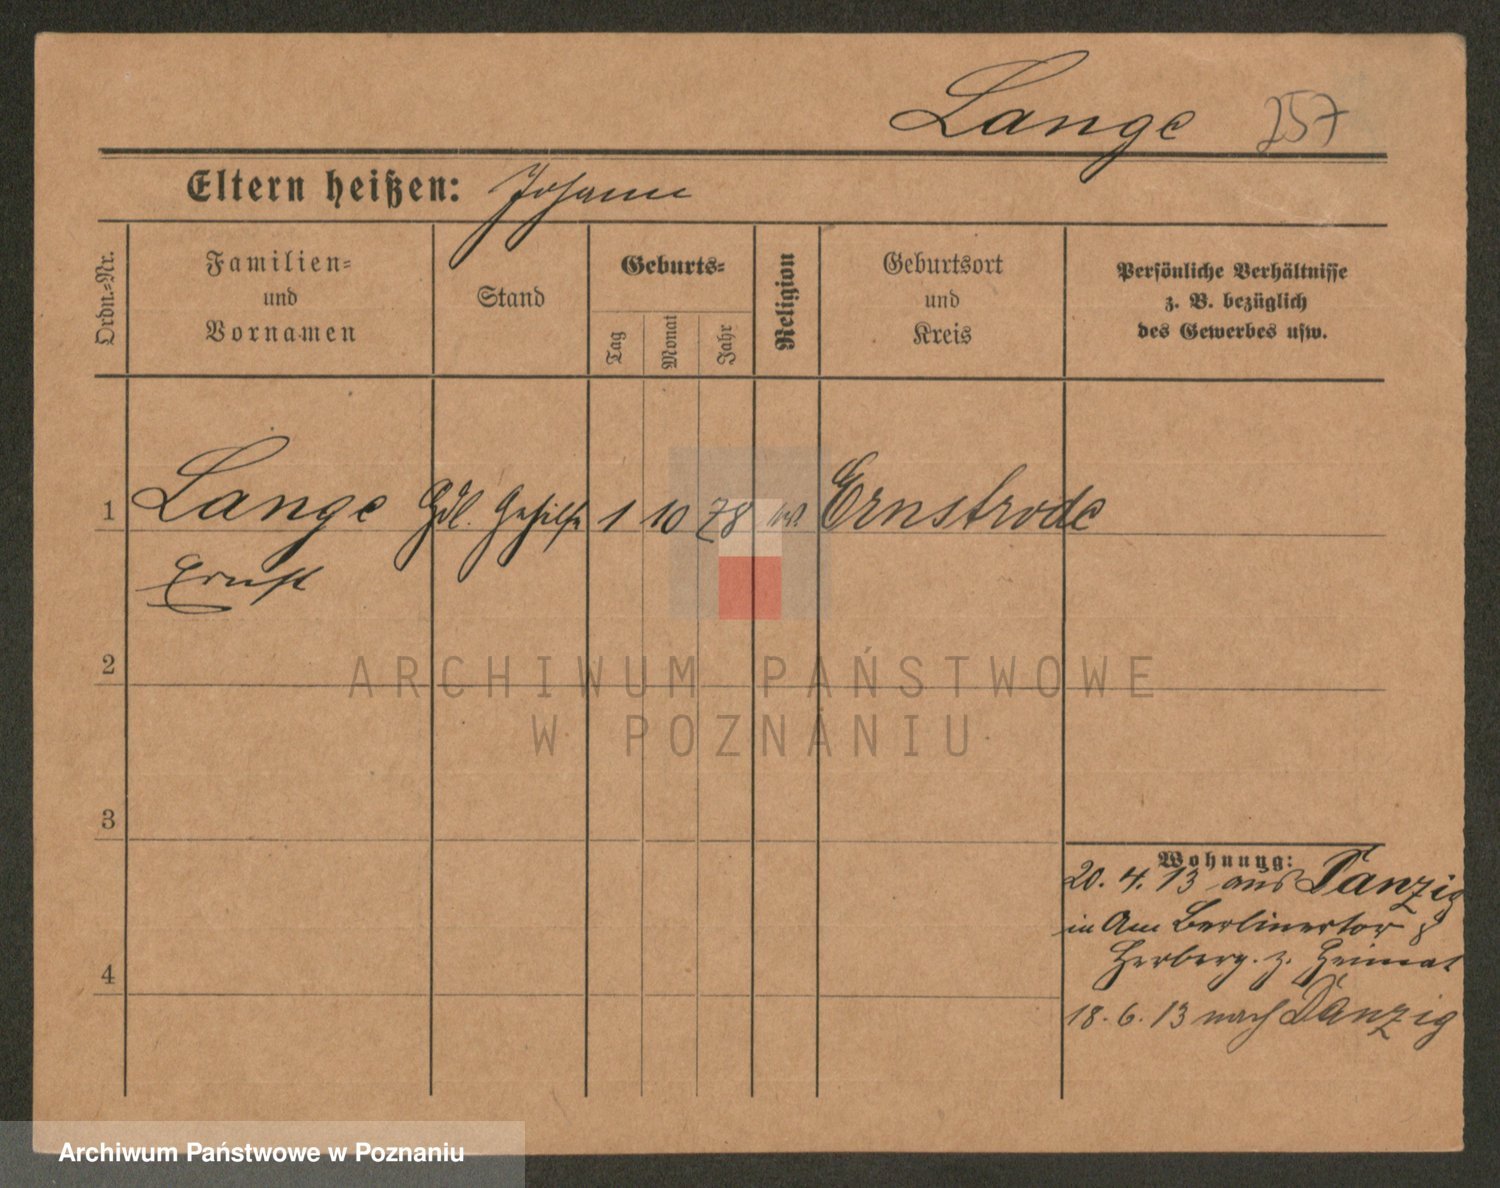 Lange 257
Eltern heißen: Johann
Ordn.-Nr.
Familien-
und
Vornamen
Stand
Geburts-
Tag
Monat
Jahr
Religion
Geburtsort
und
Kreis
Persönliche Verhältnisse
z. B. bezüglich
des Gewerbes usw.
1 Lange Hdl. Gehilfe 1 10 78 ev. Ernstrode
Ernst
2
3
4
Wohnung:
20. 4. 13 aus Danzig
in Am Berlinertor 8
Herberg. z. Heimat
18. 6. 13 nach Danzig
ARCHIWUM PAŃSTWOWE
W POZNANIU
Archiwum Państwowe w Poznaniu